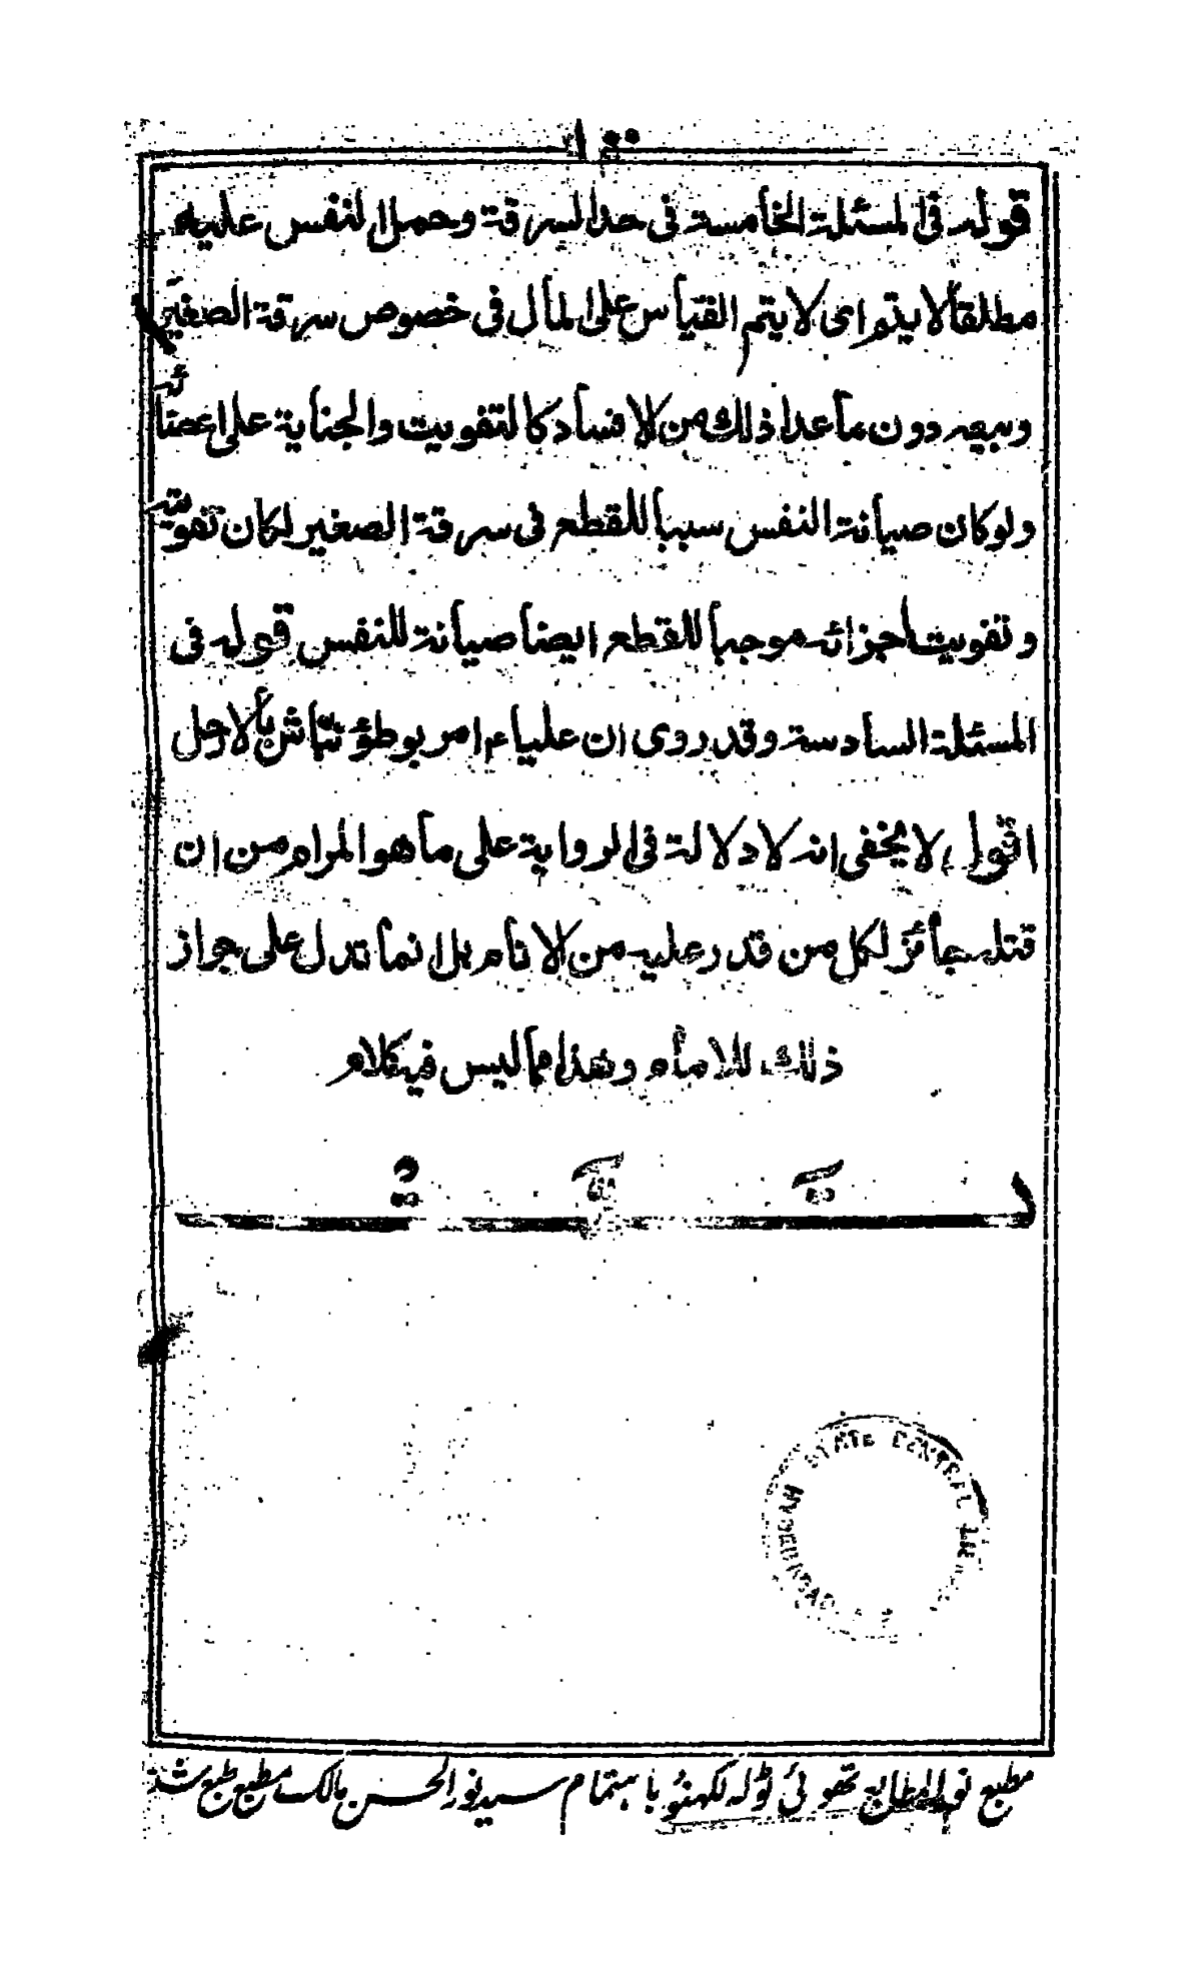 قوله فى المسئلة الخامسة فى حد السرقة وحمل النفس عليه
مطلقا لا يتم اى لا يتم القياس على المال فى خصوص سرقة الصغير
وبيعه دون ما عدا ذلك من الافساد كالتفويت والجناية على اعضائه
ولو كان صيانة النفس سببا للقطع فى سرقة الصغير لكان تفويته
وتفويت اجزائه موجبا للقطع ايضا صيانة للنفس قوله فى
المسئلة السادسة وقد روى ان علياء امر بوطؤ نبّاش بالارجل
اقول لا يخفى انه لا دلالة فى الرواية على ما هو المرام من ان
قتله جائز لكل من قدر عليه من الانام بل انما تدل على جواز
ذلك للامام وهذا مما ليس فيه كلام
STATE CENTRAL HYDERABAD
مطبع نور المطابع تھوئی ٹولہ لکھنؤ باہتمام سید نور الحسن مالک مطبع طبع شد